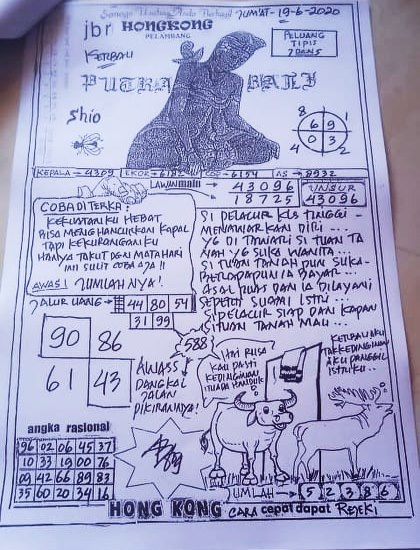 Semoga Undian Anda Berhasil JUM'AT 19-6-2020
jbr HONGKONG
PALEMBANG
KEMBALI
PELUANG
TIPIS
2 DAN 5
PUTRA BALI
Shio
8 1
6 9
0 3
4 2
KEPALA = 4309 EKOR = COP = 6154 AS = 8932
LAWAN main 43096
18725
UNSUR
43096
COBA DITERKA:
KEKUATANKU HEBAT
BISA MENGHANCURKAN KAPAL
TAPI KEKURANGANKU
HANYA TAKUT DAN MATAHARI
INI SULIT COBA AJA!!
AWAS! JUMLAHNYA!
SI PELACUR KLS TINGGI -
MENAWARKAN DIRI ...
YG DI TAWARI SI TUAN TA
NAH YG SUKA WANITA ...
SI TUAN TANAH PUN SUKA-
BERDAPAPUN IA BAYAR ...
ASAL PUAS DAN IA DILAYANI
SEPERTI SUAMI ISTRI ...
SI PELACUR SIAP DAN KAPAN
SI TUAN TANAH MAU ...
JALUR UANG 44 80 54
31 99
588
90 86
61 43
AWASS
DANGKAL
JALAN
PIKIRANNYA!
HAI RUSA
KAU PASTI
KEDINGINAN
HANDUK
KETUBALI AKU
TAK KEDINGINAN
AKU PANGGIL
ISTRIKU..
angka rasional
96 02 06 45 37
10 33 19 00 76
09 42 66 89 83
35 60 20 34 16
JUMLAH 5 2 3 8 6
HONG KONG CARA cepat dapat REJEKI